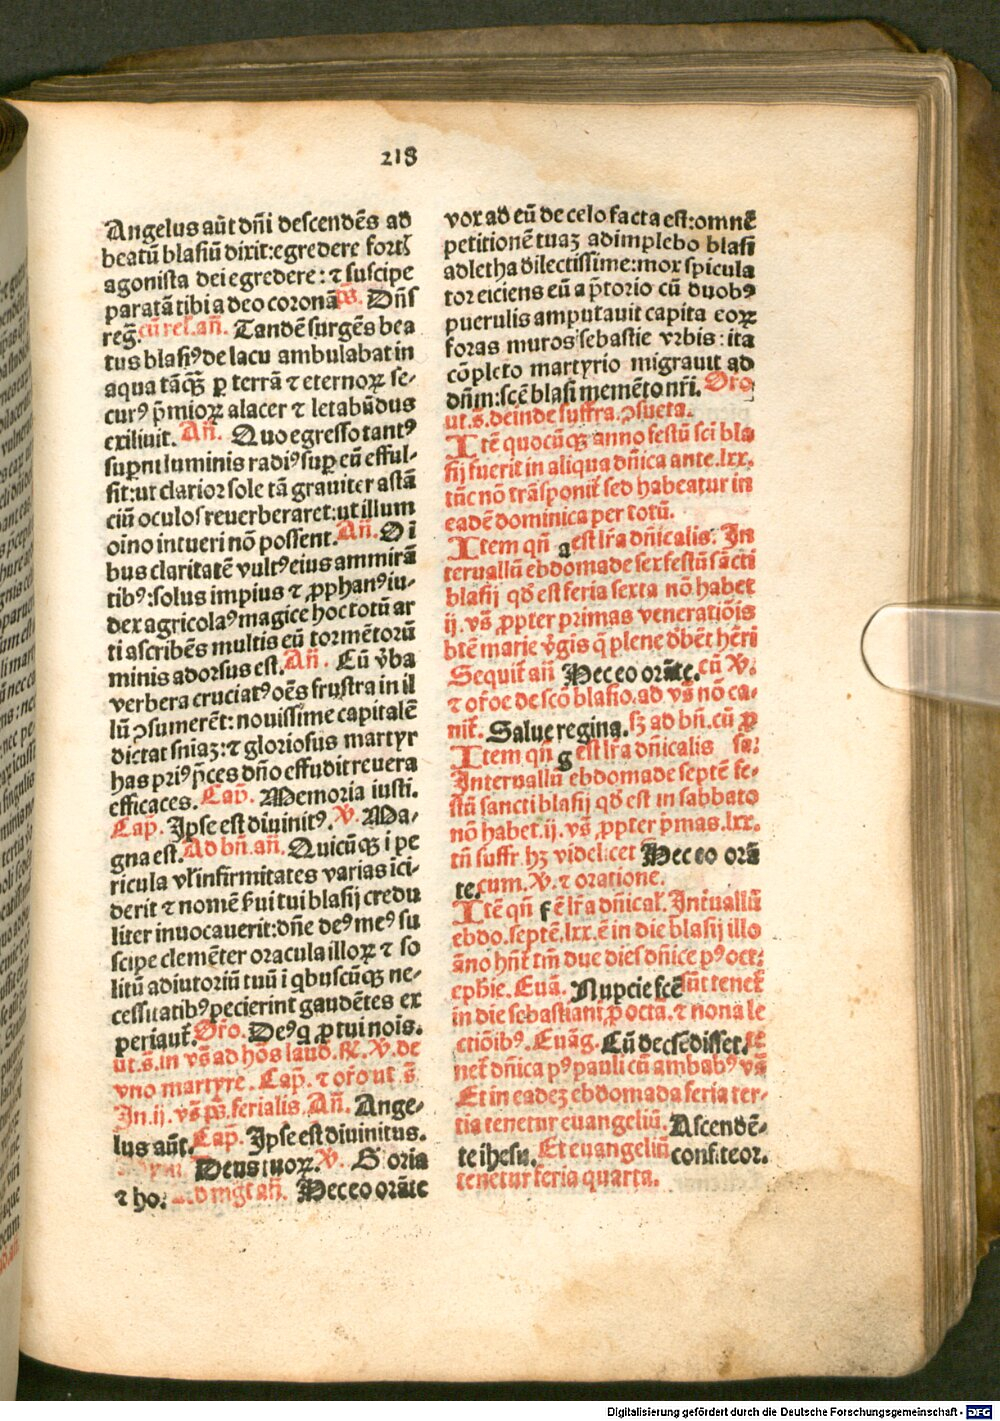 218
Angelus aūt dn̄i descendēs ad
beatū blasiū dixit:egredere fortꝭ
agonista dei egredere: ⁊ suscipe
paratā tibi a deo coronā p̄s. Dn̄s
reg̃. cū rel̃. an̄. Tandē surgēs bea
tus blasiꝰ de lacu ambulabat in
aqua tāqꝫ ꝑ terrā ⁊ eternoꝝ se-
curꝰ p̄mioꝝ alacer ⁊ letabūdus
exiliuit. An̄. Quo egresso tantꝰ
suꝑni luminis radiꝰ suꝑ eū efful-
sit:ut clarior sole tā grauiter astā
ciū oculos reuerberaret:ut illum
oīno intueri nō possent. An̄. Oī
bus claritatē vultꝰ eius ammirā
tibꝰ:solus impius ⁊ ꝓphanꝰ iu-
dex agricolaꝰ magice hoc totū ar
ti ascribēs multis eū tormētorū
minis adorsus est. An̄. Cū v̄ba
verbera cruciatꝰ oēs frustra in il
lū ↄsumerēt: nouissime capitalē
dictat sn̄iaꝫ:⁊ gloriosus martyr
has priꝰ p̄ces dn̄o effudit reuera
efficaces. Cap̄. Memoria iusti.
Cap̄. Ipse est diuinitꝰ. V̄. Ma-
gna est. Ad bn̄. an̄. Quicūqꝫ ī pe
ricula vl̃ infirmitates varias īci-
derit ⁊ nomē ẜui tui blasij credu
liter inuocauerit:dn̄e deꝰ meꝰ su
scipe clemēter oracula illoꝝ ⁊ so
litū adiutoriū tuū ī qbuscūqꝫ ne-
cessitatibꝰ pecierint gaudētes ex
periaut̃. Or̄o. Deꝰ q ꝓ tui nois.
ut.s̄. in vs̄ ad ho᷒s laud. ꝶ. V̄. de
vno martyre. Cap̄. ⁊ or̄o ut s̄
In.ij. vs̄ ps̄. ferialis. An̄. Ange-
lus aūt. Cap̄. Ipse est diuinitus.
Deus tuoꝝ. V̄. Gloria
⁊ ho. Ad mgt̃ an̄. Hec eo orāte
vox ad eū de celo facta est:omnē
petitionē tuaꝫ adimplebo blasi
adletha dilectissime:mox spicula
tor eiciens eū a p̄torio cū duobꝰ
puerulis amputauit capita eoꝝ
foras muros sebastie vrbis: ita
cōpleto martyrio migrauit ad
dn̄m:scē blasi memēto nr̄i. Oro
ut.s̄. deinde suffra. ↄsueta.
Itē quocūqꝫ anno festū sci bla
sij fuerit in aliqua dn̄ica ante.lxx.
tūc nō trāsponit̃ sed habeatur in
eadē dominica per totū.
Item qn̄ a est lr̄a dn̄icalis. In
teruallū ebdomade sex festū sācti
blasij qd̄ est feria sexta nō habet
ij. vs̄ ꝓpter primas veneratiōis
btē marie v̄gis q̄ plene dꝫbēt hēri
Sequit̃ an̄ Hec eo orāte. cū V̄.
⁊ or̄oe de scō blasio. ad vs̄ nō ca-
nit̃. Salue regina. sꝫ ad bn̄. cū ꝓ
Item qn̄ g est lr̄a dn̄icalis sa:
Interuallū ebdomade septē fe-
stū sancti blasij qd̄ est in sabbato
nō habet.ij. vs̄ ꝓpter p̄mas.lxx.
tn̄ suffr. hꝫ videlicet Hec eo orā
te. cum. V̄. ⁊ oratione.
Itē qn̄ f ē lr̄a dn̄ical̃. Int̃uallū
ebdo.septē.lxx. ē in die blasij illo
āno hn̄t tm̄ due dies dn̄ice pꝰ oct:
ephie. Euā. Nupcie fcē sūt tenet̃
in die sebastiani ꝓ octa. ⁊ nona le
ctiōibꝰ. Euāg. Cū descēdisset. te
net̃ dn̄ica pꝰ pauli cū ambabꝰ vs̄
Et in eadeꝫ ebdomada feria ter-
tia tenetur euangeliū. Ascendē-
te ihesu. Et euangeliū confiteor.
tenetur feria quarta.
Digitalisierung gefördert durch die Deutsche Forschungsgemeinschaft - DFG